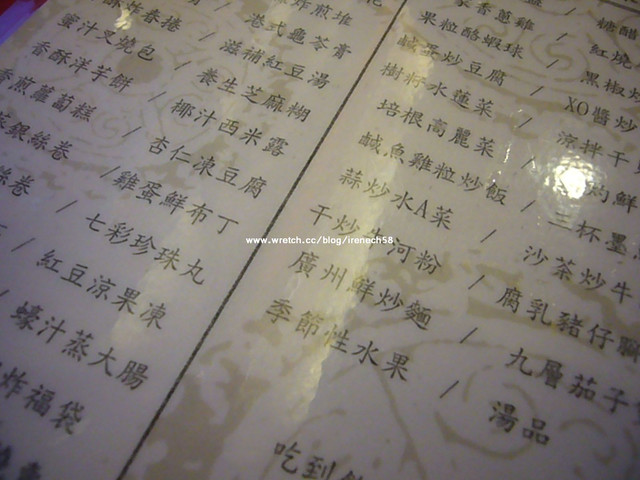 炸煎堆
港式龜苓膏
炸春捲 / 滋補紅豆湯
蜜汁叉燒包 / 養生芝麻糊
香酥洋芋餅 / 椰汁西米露
香煎蘿蔔糕 / 杏仁凍豆腐
銀絲卷 / 雞蛋鮮布丁
絲卷 / 七彩珍珠丸
/ 紅豆涼果凍
/ 蠔汁蒸大腸
炸福袋
香蔥雞 / 紅燒
果粒酥蝦球 / 黑椒炒
鹹蛋炒豆腐 / XO醬炒
樹籽水蓮菜 / 涼拌干
培根高麗菜 / 灼鮮
鹹魚雞粒炒飯 / 三杯墨
蒜炒水A菜 / 沙茶炒牛
干炒牛河粉 / 腐乳豬仔
廣州鮮炒麵 / 九層茄子
季節性水果 / 湯品
吃到
糖醋
www.wretch.cc/blog/irenech58